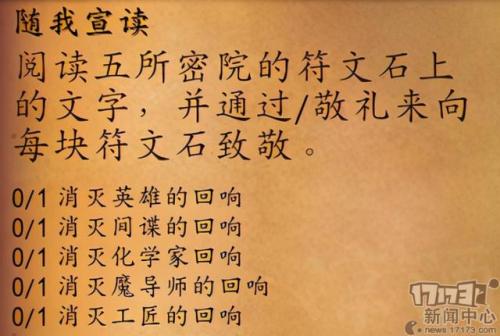 随我宣读
阅读五所密院的符文石上
的文字，并通过/敬礼来向
每块符文石致敬。
0/1 消灭英雄的回响
0/1 消灭间谍的回响
0/1 消灭化学家回响
0/1 消灭魔导师的回响
0/1 消灭工匠的回响
17173
新闻中心
news.17173.com